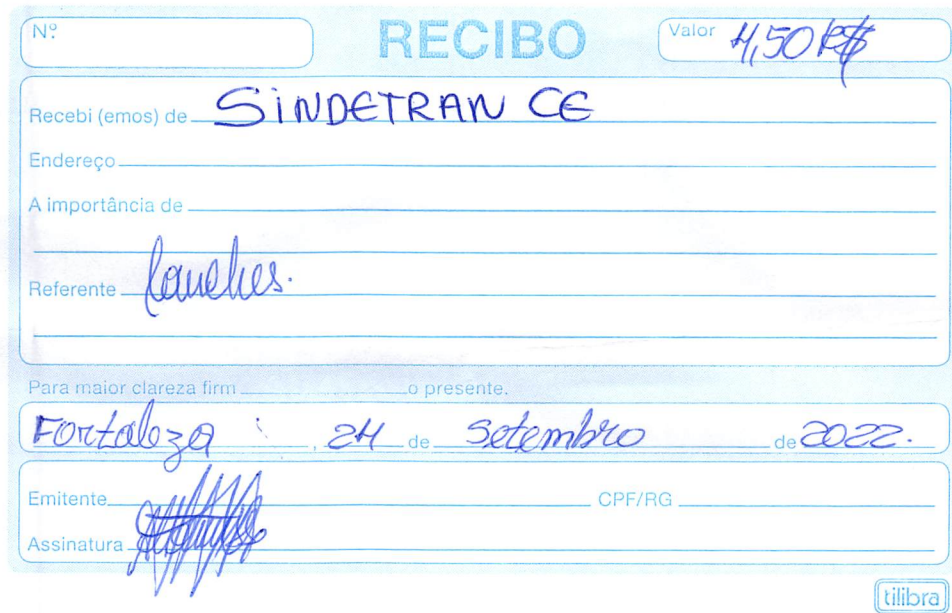 Nº RECIBO Valor 4,50 R$
Recebi (emos) de SINDETRAN CE
Endereço
A importância de
Referente Lanches.
Para maior clareza firm o presente.
Fortaleza , 24 de Setembro de 2022.
Emitente CPF/RG
Assinatura
tilibra